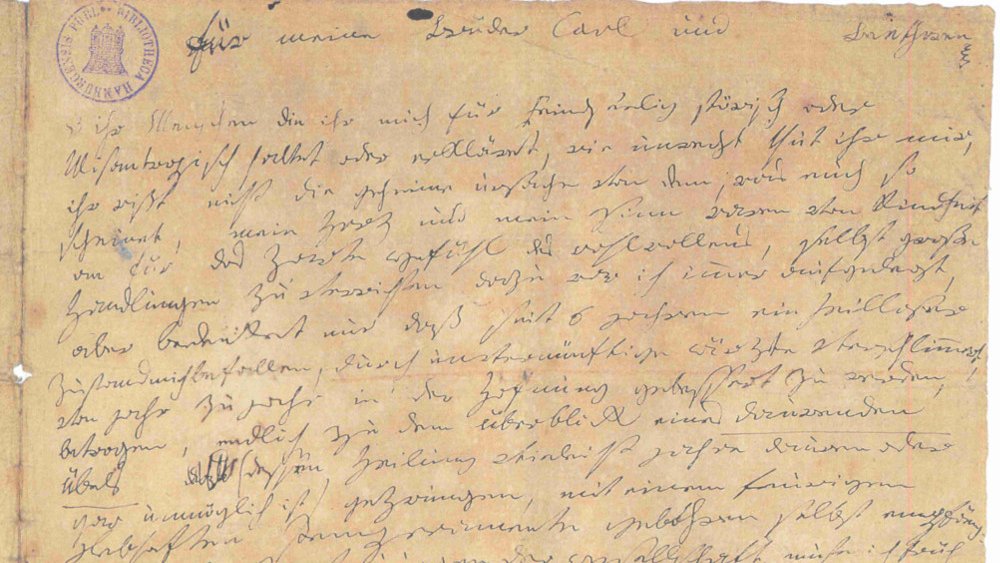 BIBLIOTHECA HAMBURGENSIS PUBL.
für meine Brüder Carl und Beethowen
O ihr Menschen die ihr mich für Feindseelig störisch oder
Misantropisch haltet oder erkläret, wie unrecht thut ihr mir,
ihr wißt nicht die geheime ursache von dem, was euch so
scheinet, mein Herz und mein Sinn waren von Kindheit
an für das Zarte Gefühl des wohlwollens, selbst große
Handlungen zu verrichten dazu war ich immer aufgelegt,
aber bedenket nur daß seit 6 jahren ein heilloser
Zustand mich befallen, durch unvernünftige ärzte verschlimmert,
von jahr zu jahr in der Hofnung gebessert zu werden,
betrogen, endlich zu dem überblick eines daurenden
Übels (dessen Heilung vieleicht jahre dauren oder
gar unmöglich ist) gezwungen, mit einem feurigen
Lebhaften Temperamente gebohren selbst
der gesellschaft, muste ich früh